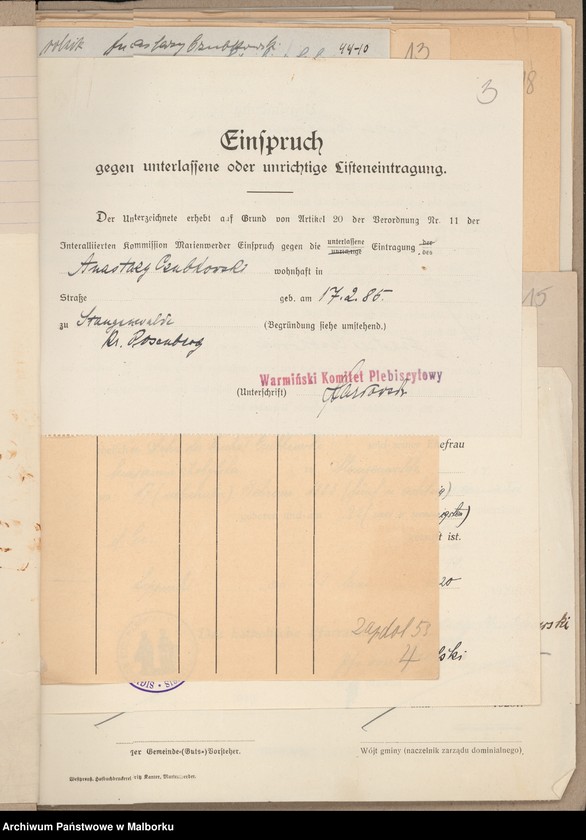 Anastazy Czubkowski 44-10
13
18
3
Einspruch
gegen unterlassene oder unrichtige Listeneintragung.
Der Unterzeichnete erhebt auf Grund von Artikel 20 der Verordnung Nr. 11 der
Interalliierten Kommission Marienwerder Einspruch gegen die unterlassene unrichtige Eintragung der des
Anastazy Czubkowski wohnhaft in
Straße geb. am 17.2.85.
zu Stangenwalde (Begründung siehe umstehend.)
Kr. Rosenberg
Warmiński Komitet Plebiscytowy
(Unterschrift)
15
efrau
t ist.
20
zagdol 53
4
ski
lski
der Gemeinde-(Guts-)Vorsteher.
Wójt gminy (naczelnik zarządu dominialnego)
Westpreuß. Hofbuchdruckerei Fritz Kanter, Marienwerder.
Archiwum Państwowe w Malborku